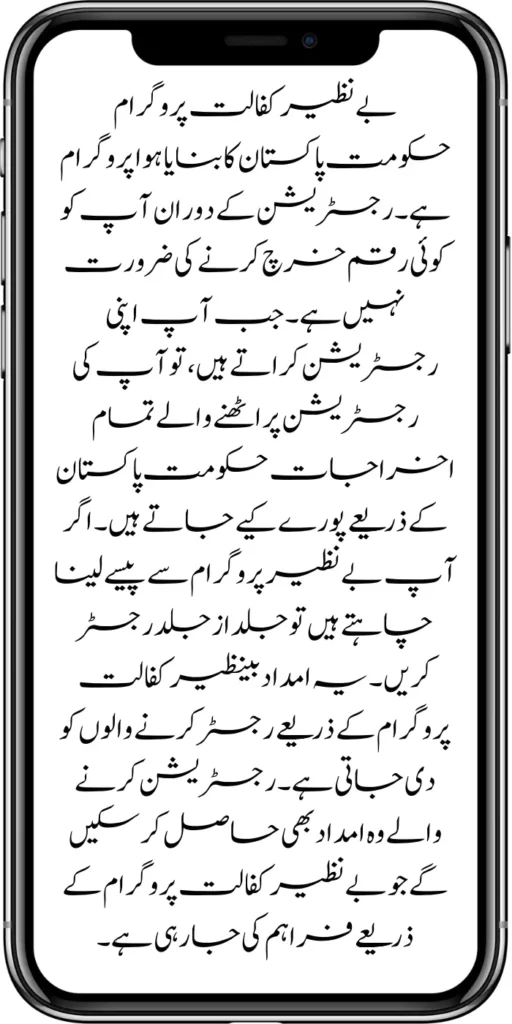 بے نظیر کفالت پروگرام
حکومت پاکستان کا بنایا ہوا پروگرام
ہے۔ رجسٹریشن کے دوران آپ کو
کوئی رقم خرچ کرنے کی ضرورت
نہیں ہے۔ جب آپ اپنی
رجسٹریشن کراتے ہیں، تو آپ کی
رجسٹریشن پر اٹھنے والے تمام
اخراجات حکومت پاکستان
کے ذریعے پورے کیے جاتے ہیں۔ اگر
آپ بے نظیر پروگرام سے پیسے لینا
چاہتے ہیں تو جلد از جلد رجسٹر
کریں۔ یہ امداد بینظیر کفالت
پروگرام کے ذریعے رجسٹر کرنے والوں کو
دی جاتی ہے۔ رجسٹریشن کرنے
والے وہ امداد بھی حاصل کر سکیں
گے جو بے نظیر کفالت پروگرام کے
ذریعے فراہم کی جا رہی ہے۔